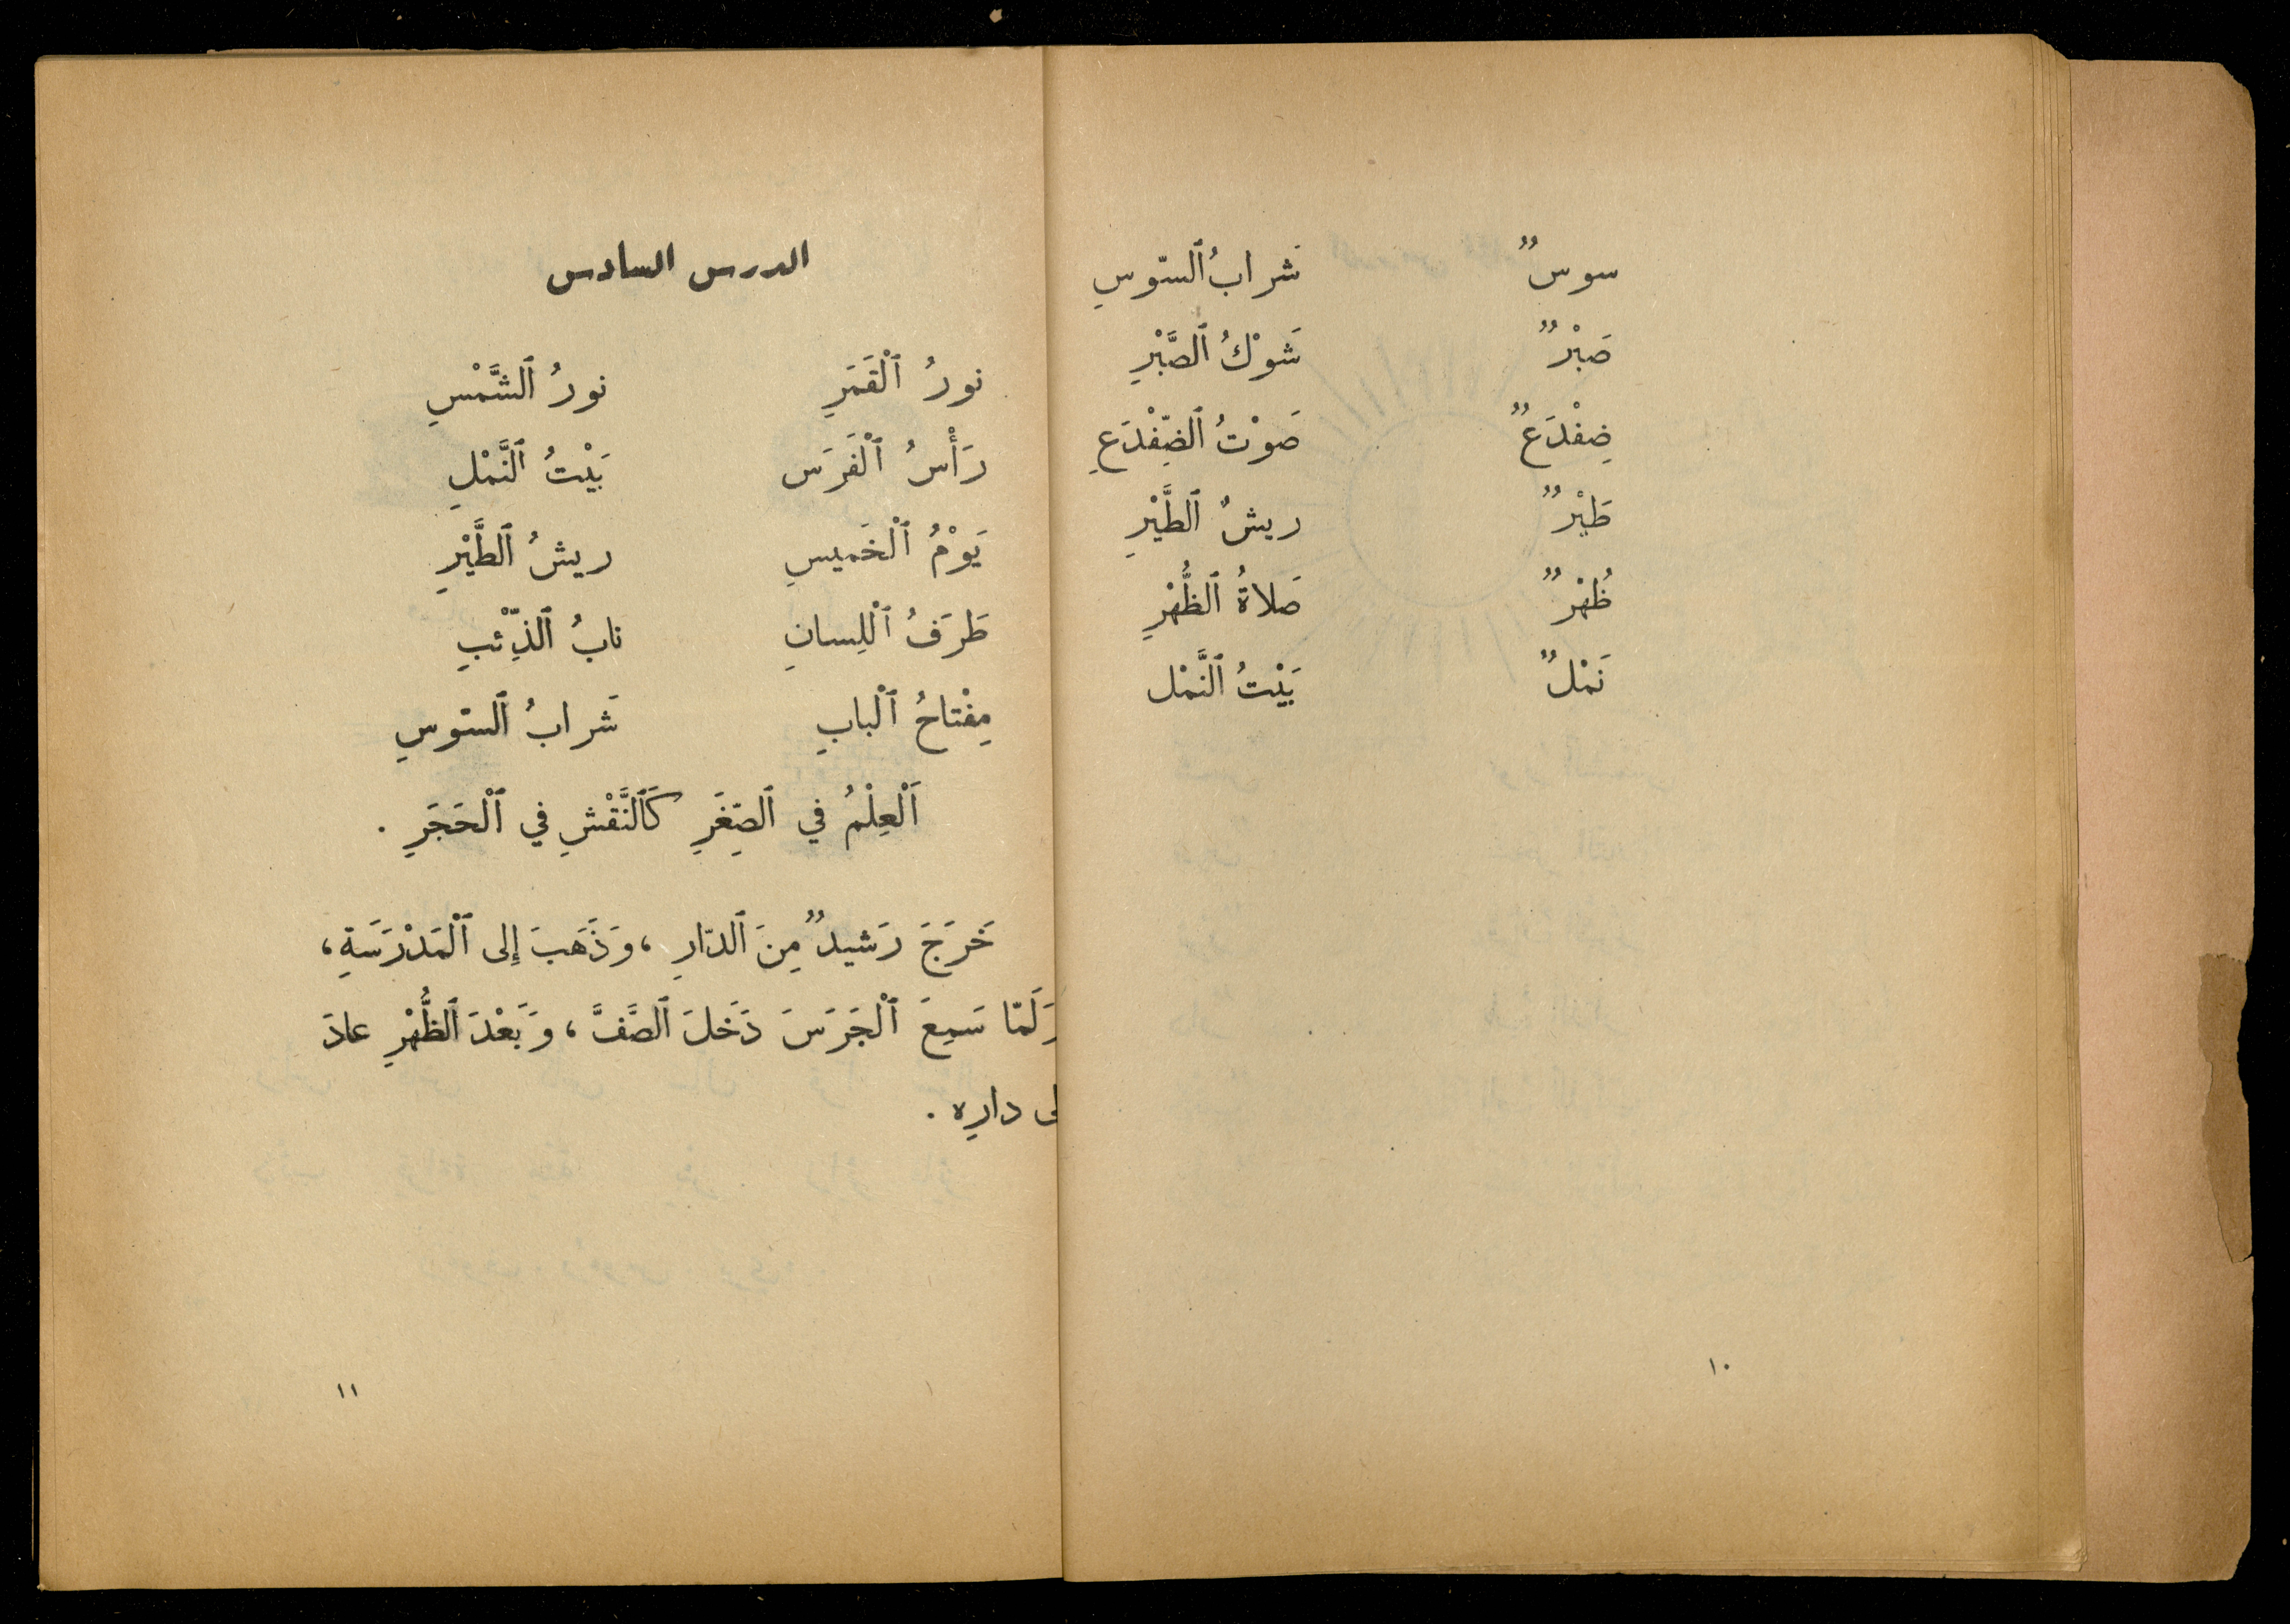 سوسٌ شَرابُ ٱلسّوسِ
صَبْرٌ شَوْكُ ٱلصَّبْرِ
ضِفْدَعٌ صَوْتُ ٱلضِّفْدَعِ
طَيْرٌ ريشُ ٱلطَّيْرِ
ظُهْرٌ صَلاةُ ٱلظُّهْرِ
نَمْلٌ بَيْتُ ٱلنَّمْل
١٠
الدرس السادس
نورُ ٱلْقَمَرِ نورُ ٱلشَّمْسِ
رَأْسُ ٱلْفَرَس بَيْتُ ٱلنَّمْلِ
يَوْمُ ٱلْخَميسِ ريشُ ٱلطَّيْرِ
طَرَفُ ٱلْلِسانِ نابُ ٱلذِّئْبِ
مِفْتاحُ ٱلْبابِ شَرابُ ٱلسّوسِ
اَلْعِلْمُ في ٱلصِّغَرِ كَٱلنَّقْشِ في ٱلْحَجَرِ .
خَرَجَ رَشيدٌ مِنَ ٱلدّارِ ، وَذَهَبَ إِلى ٱلْمَدْرَسَةِ ،
وَلَمّا سَمِعَ ٱلْجَرَسَ دَخَلَ ٱلصَّفَّ ، وَبَعْدَ ٱلظُّهْرِ عادَ
لى دارِه .
١١